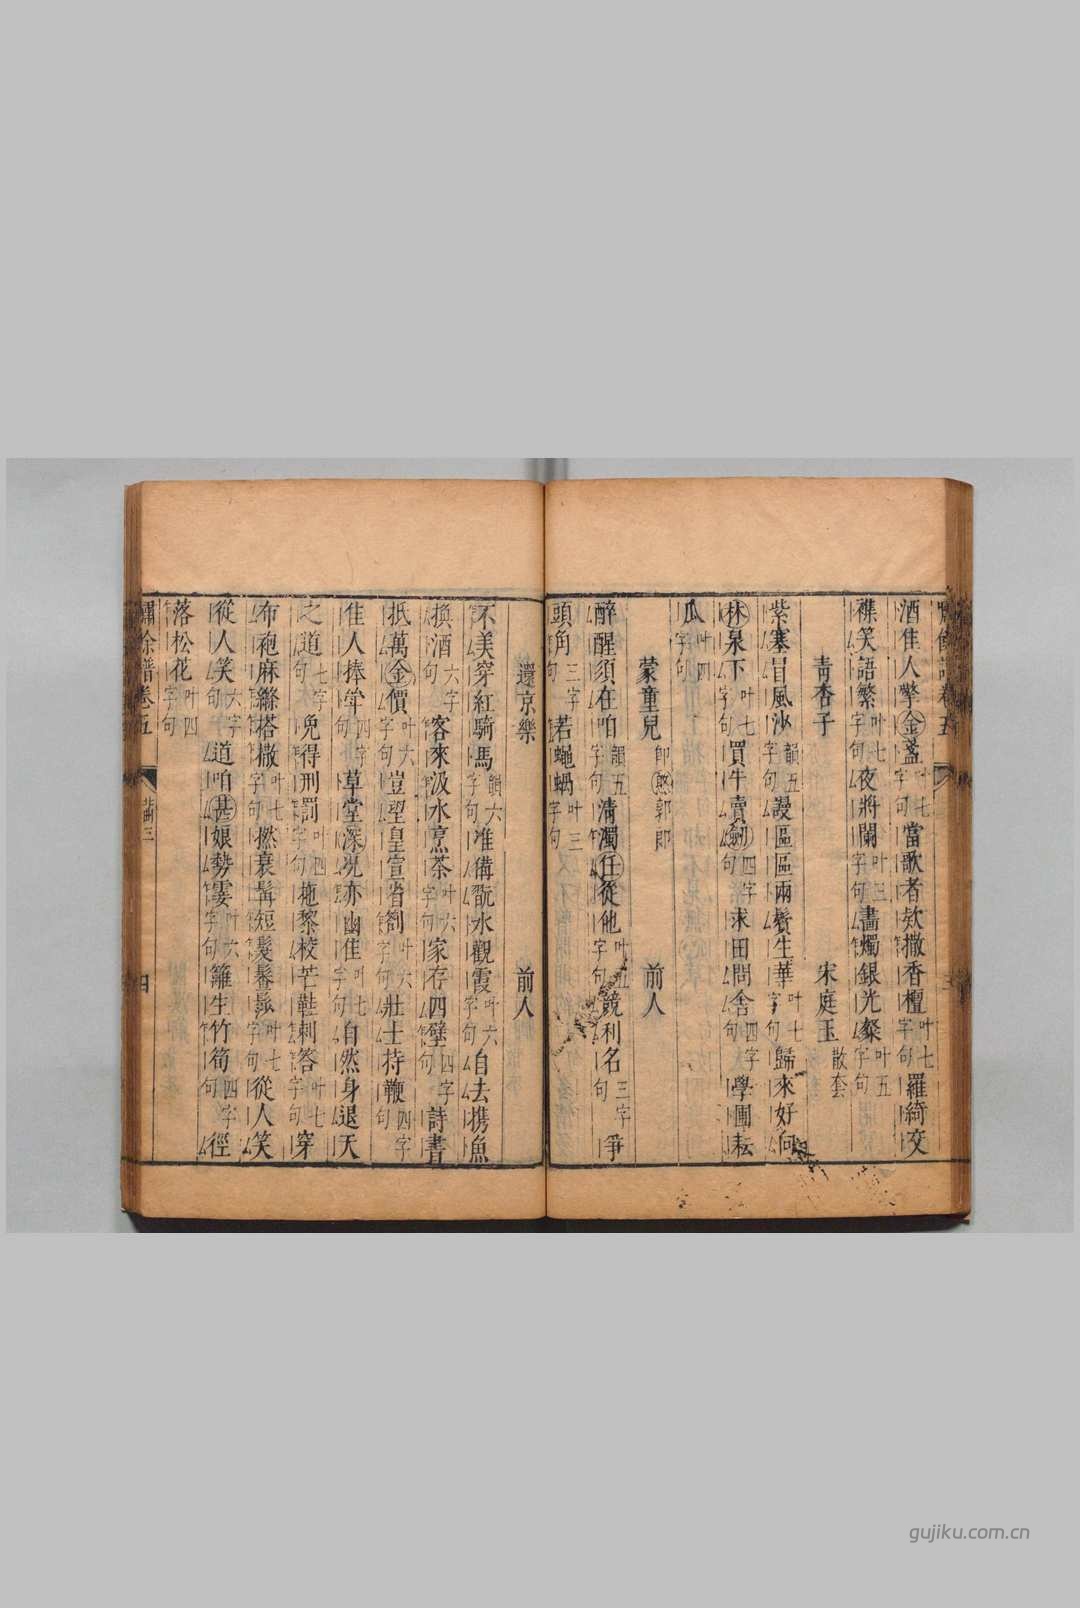 酒佳人擎金盞叶七字句當歌者欵撒香檀叶七字句羅綺交
襍笑語繁叶七字句夜將闌叶三字句畵燭銀光粲叶五字句
青杏子 宋庭玉散套
紫塞冒風沙韻五字句謾區區兩鬢生華叶七字句歸來好向
林泉下叶七字句買牛賣劒四字句求田問舍四字句學圃耘
瓜叶四字句
蒙童兒即憨郭郎 前人
醉醒須在咱韻五字句清濁任從他叶五字句競利名三字句爭
頭角三字句若蠅蝸叶三字句
還京樂 前人
不美穿紅騎馬韻六字句准備翫水觀霞叶六字句自去携魚
換酒六字句客來汲水烹茶叶六字句家存四壁四字句詩書
抵萬金價叶六字句豈望皇宣省劄叶六字句壯士持鞭四字句
佳人捧牟四字句草堂深況亦幽佳叶七字句自然身退天
之道七字句免得刑罰叶四字句拖藜杖芒鞋刺答叶七字句穿
布袍麻縧搭撒叶七字句撚衰髯短髮鬖髿叶七字句從人笑
從人笑六字句道咱甚娘勢霎叶六字句籬生竹筍四字句徑
落松花叶四字句
嘯餘譜卷五 四
gujiku.com.cn